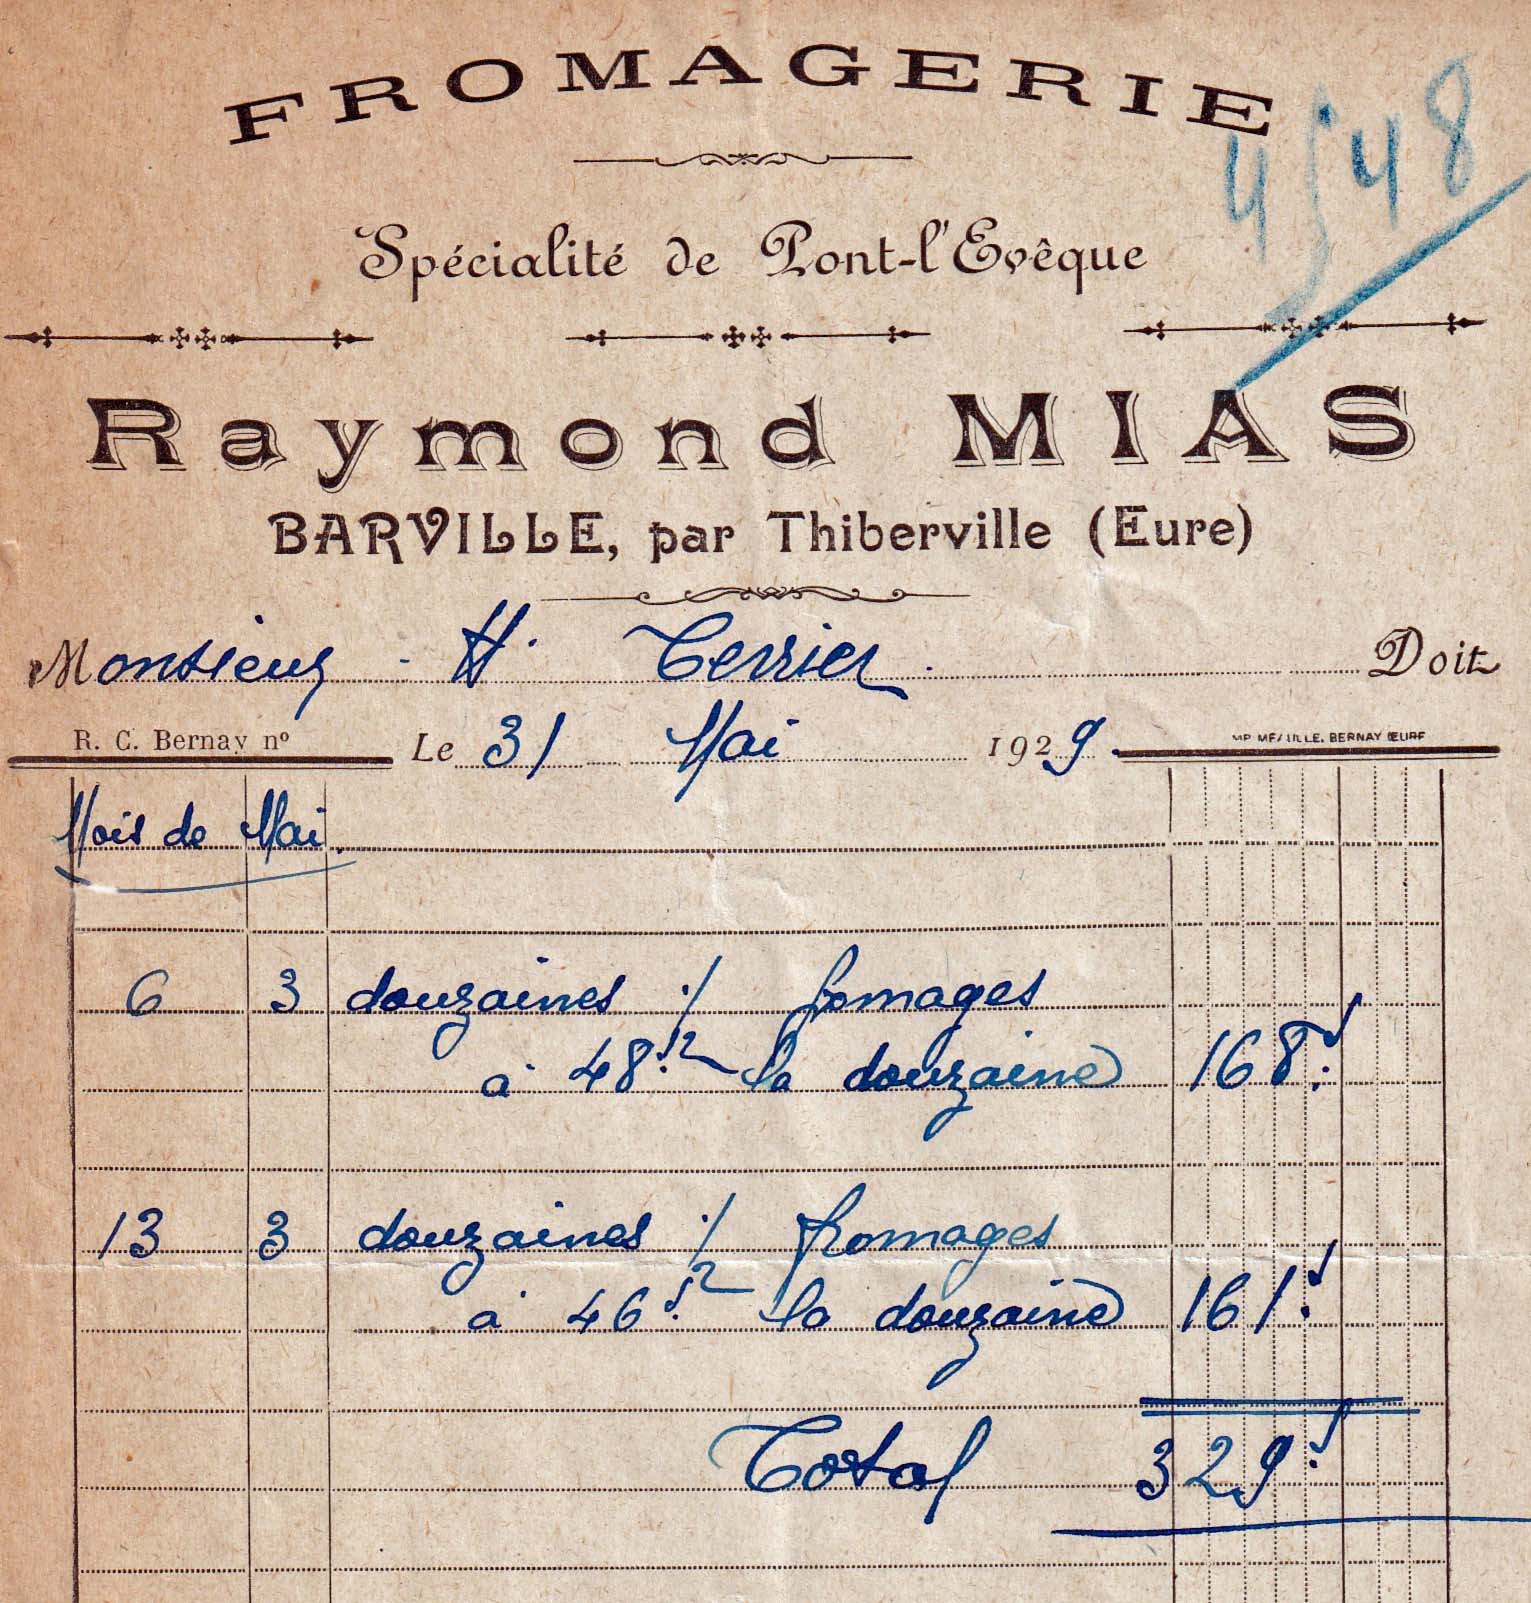 FROMAGERIE
Spécialité de Pont-l'Evêque
Raymond MIAS
BARVILLE, par Thiberville (Eure)
Monsieur H. Terrier. Doit
R. C. Bernay nº Le 31 Mai 1929. IMP. MEAULLE. BERNAY (EURE
Mois de Mai.
6 3 douzaines 1/2 fromages
à 48f. la douzaine 168f.
13 3 douzaines 1/2 fromages
à 46f. la douzaine 161f.
Total 329f.